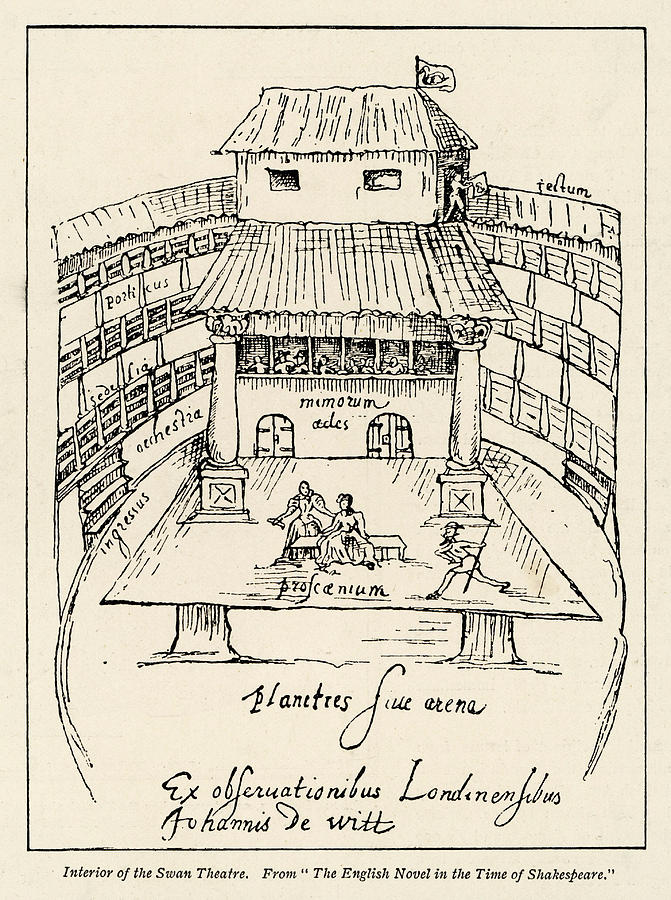 tectum
porticus
sedilia
orchestra
mimorum
ædes
ingressus
proscænium
planities siue arena
Ex obseruationibus Londinensibus
Johannis De witt
Interior of the Swan Theatre. From " The English Novel in the Time of Shakespeare."